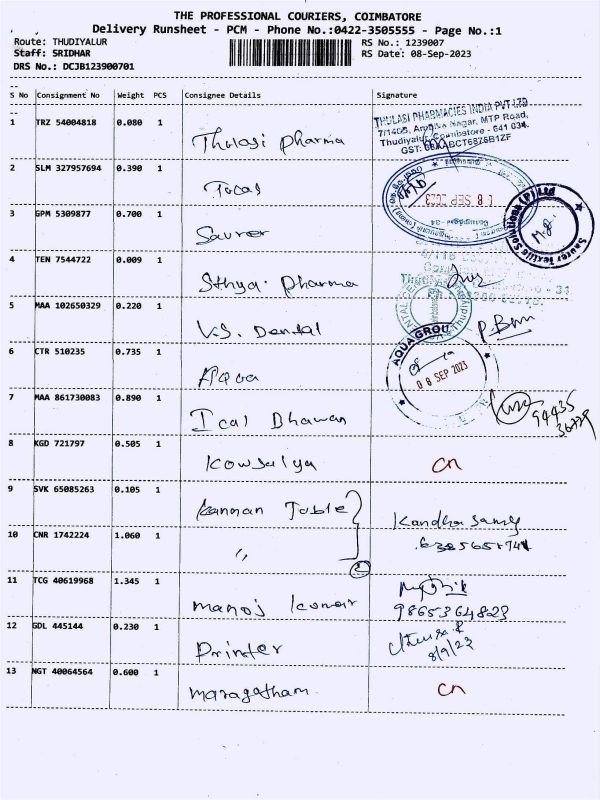 THE PROFESSIONAL COURIERS, COIMBATORE
Delivery Runsheet - PCM - Phone No.:0422-3505555 - Page No.:1
Route: THUDIYALUR
RS No.: 1239007
Staff: SRIDHAR
RS Date: 08-Sep-2023
DRS No.: DCJB123900701
S No Consignment No Weight PCS Consignee Details Signature
1 TRZ 54004818 0.080 1 Thulasi pharma
THULASI PHARMACIES INDIA PVT LTD
Nagar, MTP Road,
Thudiyalur, Coimbatore - 641 034.
2 SLM 327957694 0.390 1
08 SEP 2023
3 GPM 5309877 0.700 1 Saurer
Saurer Textile Solutions (P) Ltd
4 TEN 7544722 0.009 1 Sthya. Pharma
5 MAA 102650329 0.220 1 V.S. Dental
6 CTR 510235 0.735 1 Aqua
AQUA GROUP
08 SEP 2023
7 MAA 861730083 0.890 1 Ical Bhawan
94435
8 KGD 721797 0.505 1 Kowsalya cn
9 SVK 65085263 0.105 1 Kannan Table Kandha Samy
10 CNR 1742224 1.060 1 〃
2
11 TCG 40619968 1.345 1 manoj kumar
9865364823
12 GDL 445144 0.230 1 Printer
8/9/23
13 NGT 40064564 0.600 1 maragatham cn